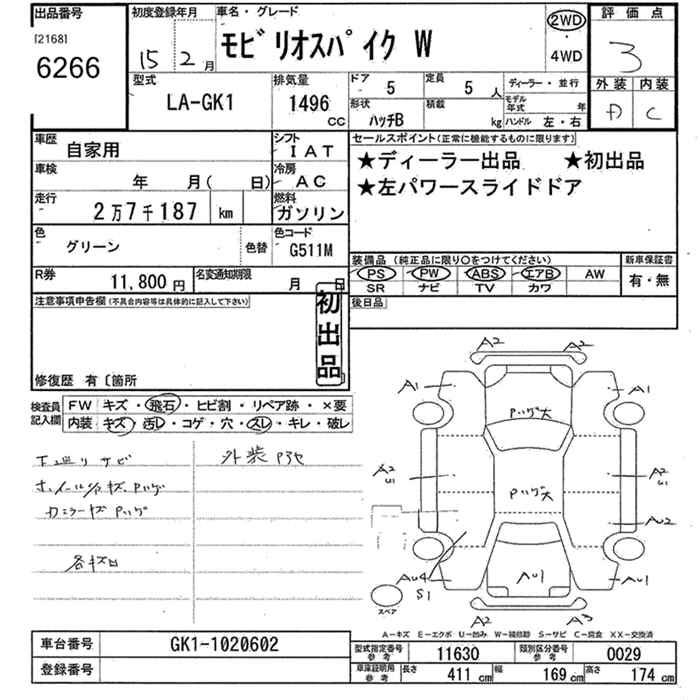 出品番号
[2168]
6266
初度登録年月
15年 2月
車名・グレード
モビリオスパイク W
2WD
・
4WD
評価点
3
外装 内装
A C
型式
LA-GK1
排気量
1496 CC
ドア 5
定員 5人
ディーラー・並行
形状 ハッチB
積載 kg
モデル年式 年
ハンドル 左・右
車歴
自家用
シフト
IAT
セールスポイント(正常に機能するものに限ります)
★ディーラー出品 ★初出品
★左パワースライドドア
車検
年 月( 日)
冷房
AC
走行
2万7千187 km
燃料
ガソリン
色
グリーン
色替
色コード
G511M
装備品 (純正品に限り○をつけてください)
新車保証書
PS PW ABS エアB AW
SR ナビ TV カワ
有・無
R券
11,800円
名変通知期限
月 日
後日品
注意事項申告欄(不具合内容等は具体的に記入して下さい)
初出品
修復歴 有〔箇所
検査員記入欄
FW キズ・飛石・ヒビ割・リペア跡・×要
内装 キズ・汚レ・コゲ・穴・スレ・キレ・破レ
下廻りサビ
外装
ホイールキズ
各キズ凹
A2 A2
A1 A1
A2 U1
A2 U1
AU2
AU4 S1
AU1
AU1
A2 A3
スペア
A-キズ E-エクボ U-凹み W-補修跡 S-サビ C-腐食 XX-交換済
車台番号
GK1-1020602
登録番号
型式指定番号 参考
11630
類別区分番号 参考
0029
車庫証明用 参考
長さ 411 cm
幅 169 cm
高さ 174 cm